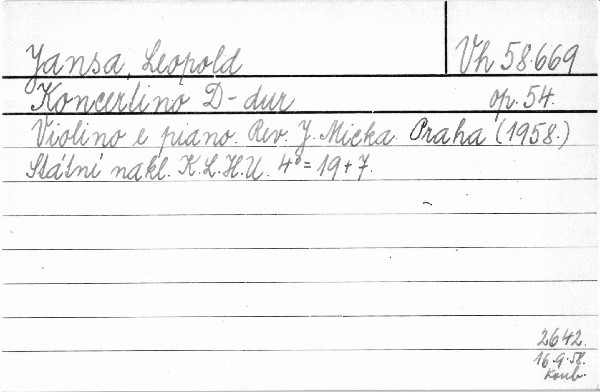 Jansa, Leopold Vh 58.669
Koncertino D-dur op. 54.
Violino e piano. Rev. J. Micka Praha (1958.)
Státní nakl. K.L.H.U. 4°= 19+7.
2642.
16.9.58.
Koub.